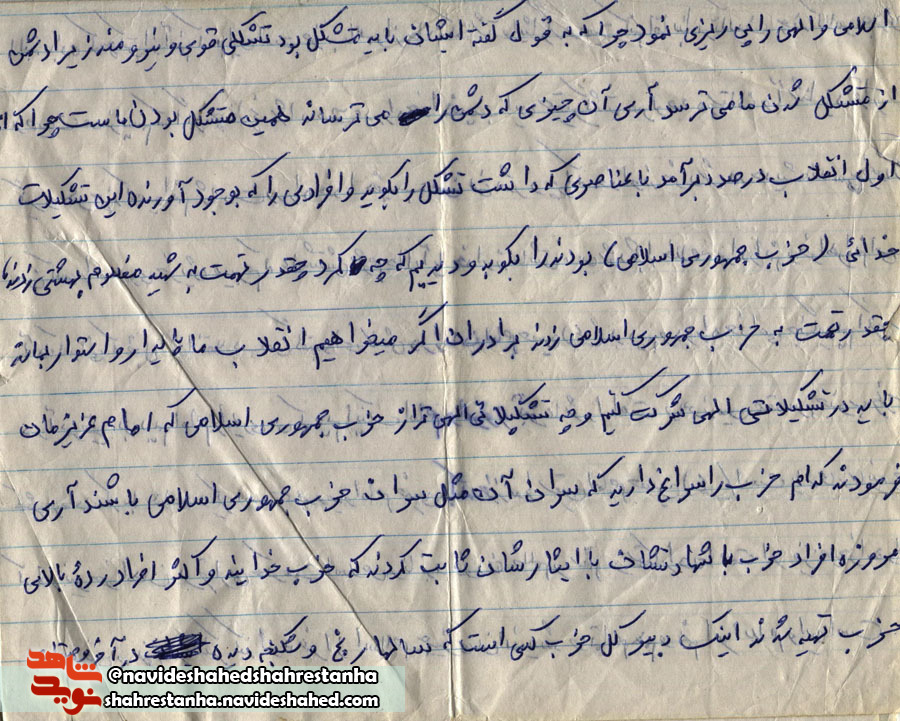 اسلامی و الهی را پی ریزی نمود چرا که به قول گفته ایشان باید متشکل بود تشکلی قوی و نیرومند زیرا دشمن
از متشکل شدن ما می ترسد آری آن چیزی که دشمن را می ترساند همین متشکل بودن ماست چرا که از
اول انقلاب درصدد برآمد با عناصری که داشت تشکل را بکوبد و افرادی را که بوجود آورنده این تشکیلات
خدائی (حزب جمهوری اسلامی) بودند را بکوبد و دیدیم که چه کرد چقدر تهمت به شهید مظلوم بهشتی زدند
چقدر تهمت به حزب جمهوری اسلامی زدند برادران اگر میخواهیم انقلاب ما پایدار و استوار بماند
باید در تشکیلاتی الهی شرکت کنیم و چه تشکیلاتی الهی تر از حزب جمهوری اسلامی که امام عزیزمان
فرمودند کدام حزب را سراغ دارید که سران آن مثل سران حزب جمهوری اسلامی باشند آری
امروزه افراد حزب با شهادتشان با ایثارشان ثابت کردند که حزب خدایند و اکثر افراد ردهٔ بالای
حزب شهید شدند اینک دبیر کل حزب کسی است که سالها رنج و شکنجه دیده در
شاهد
نوید
@navideshahedshahrestanha
shahrestanha.navideshahed.com